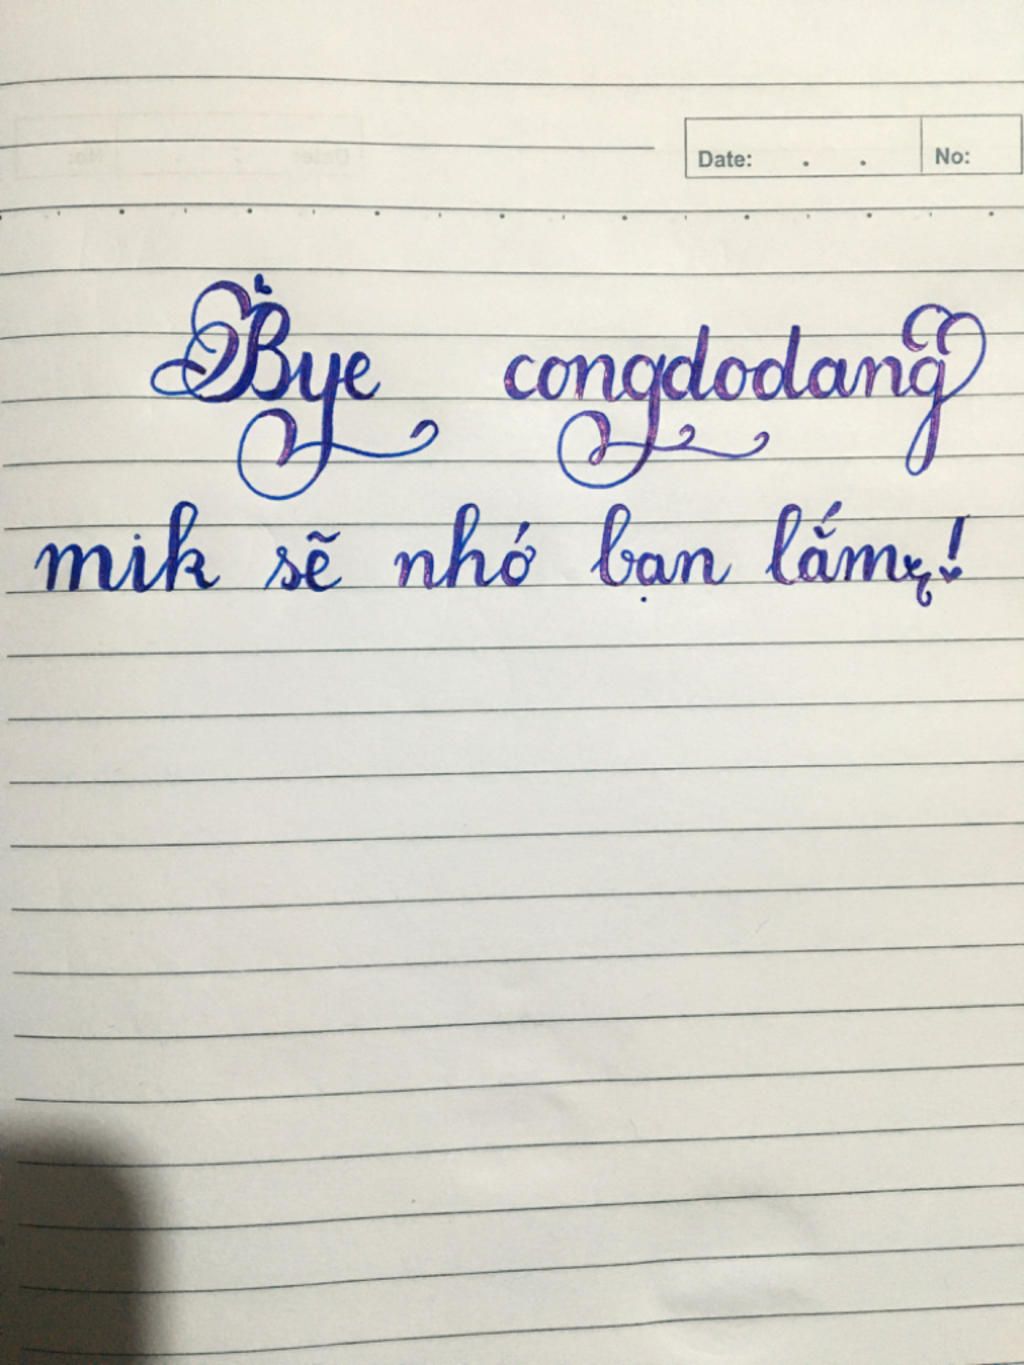 Date: . . No:
Bye congdodang
mik sẽ nhớ bạn lắm!